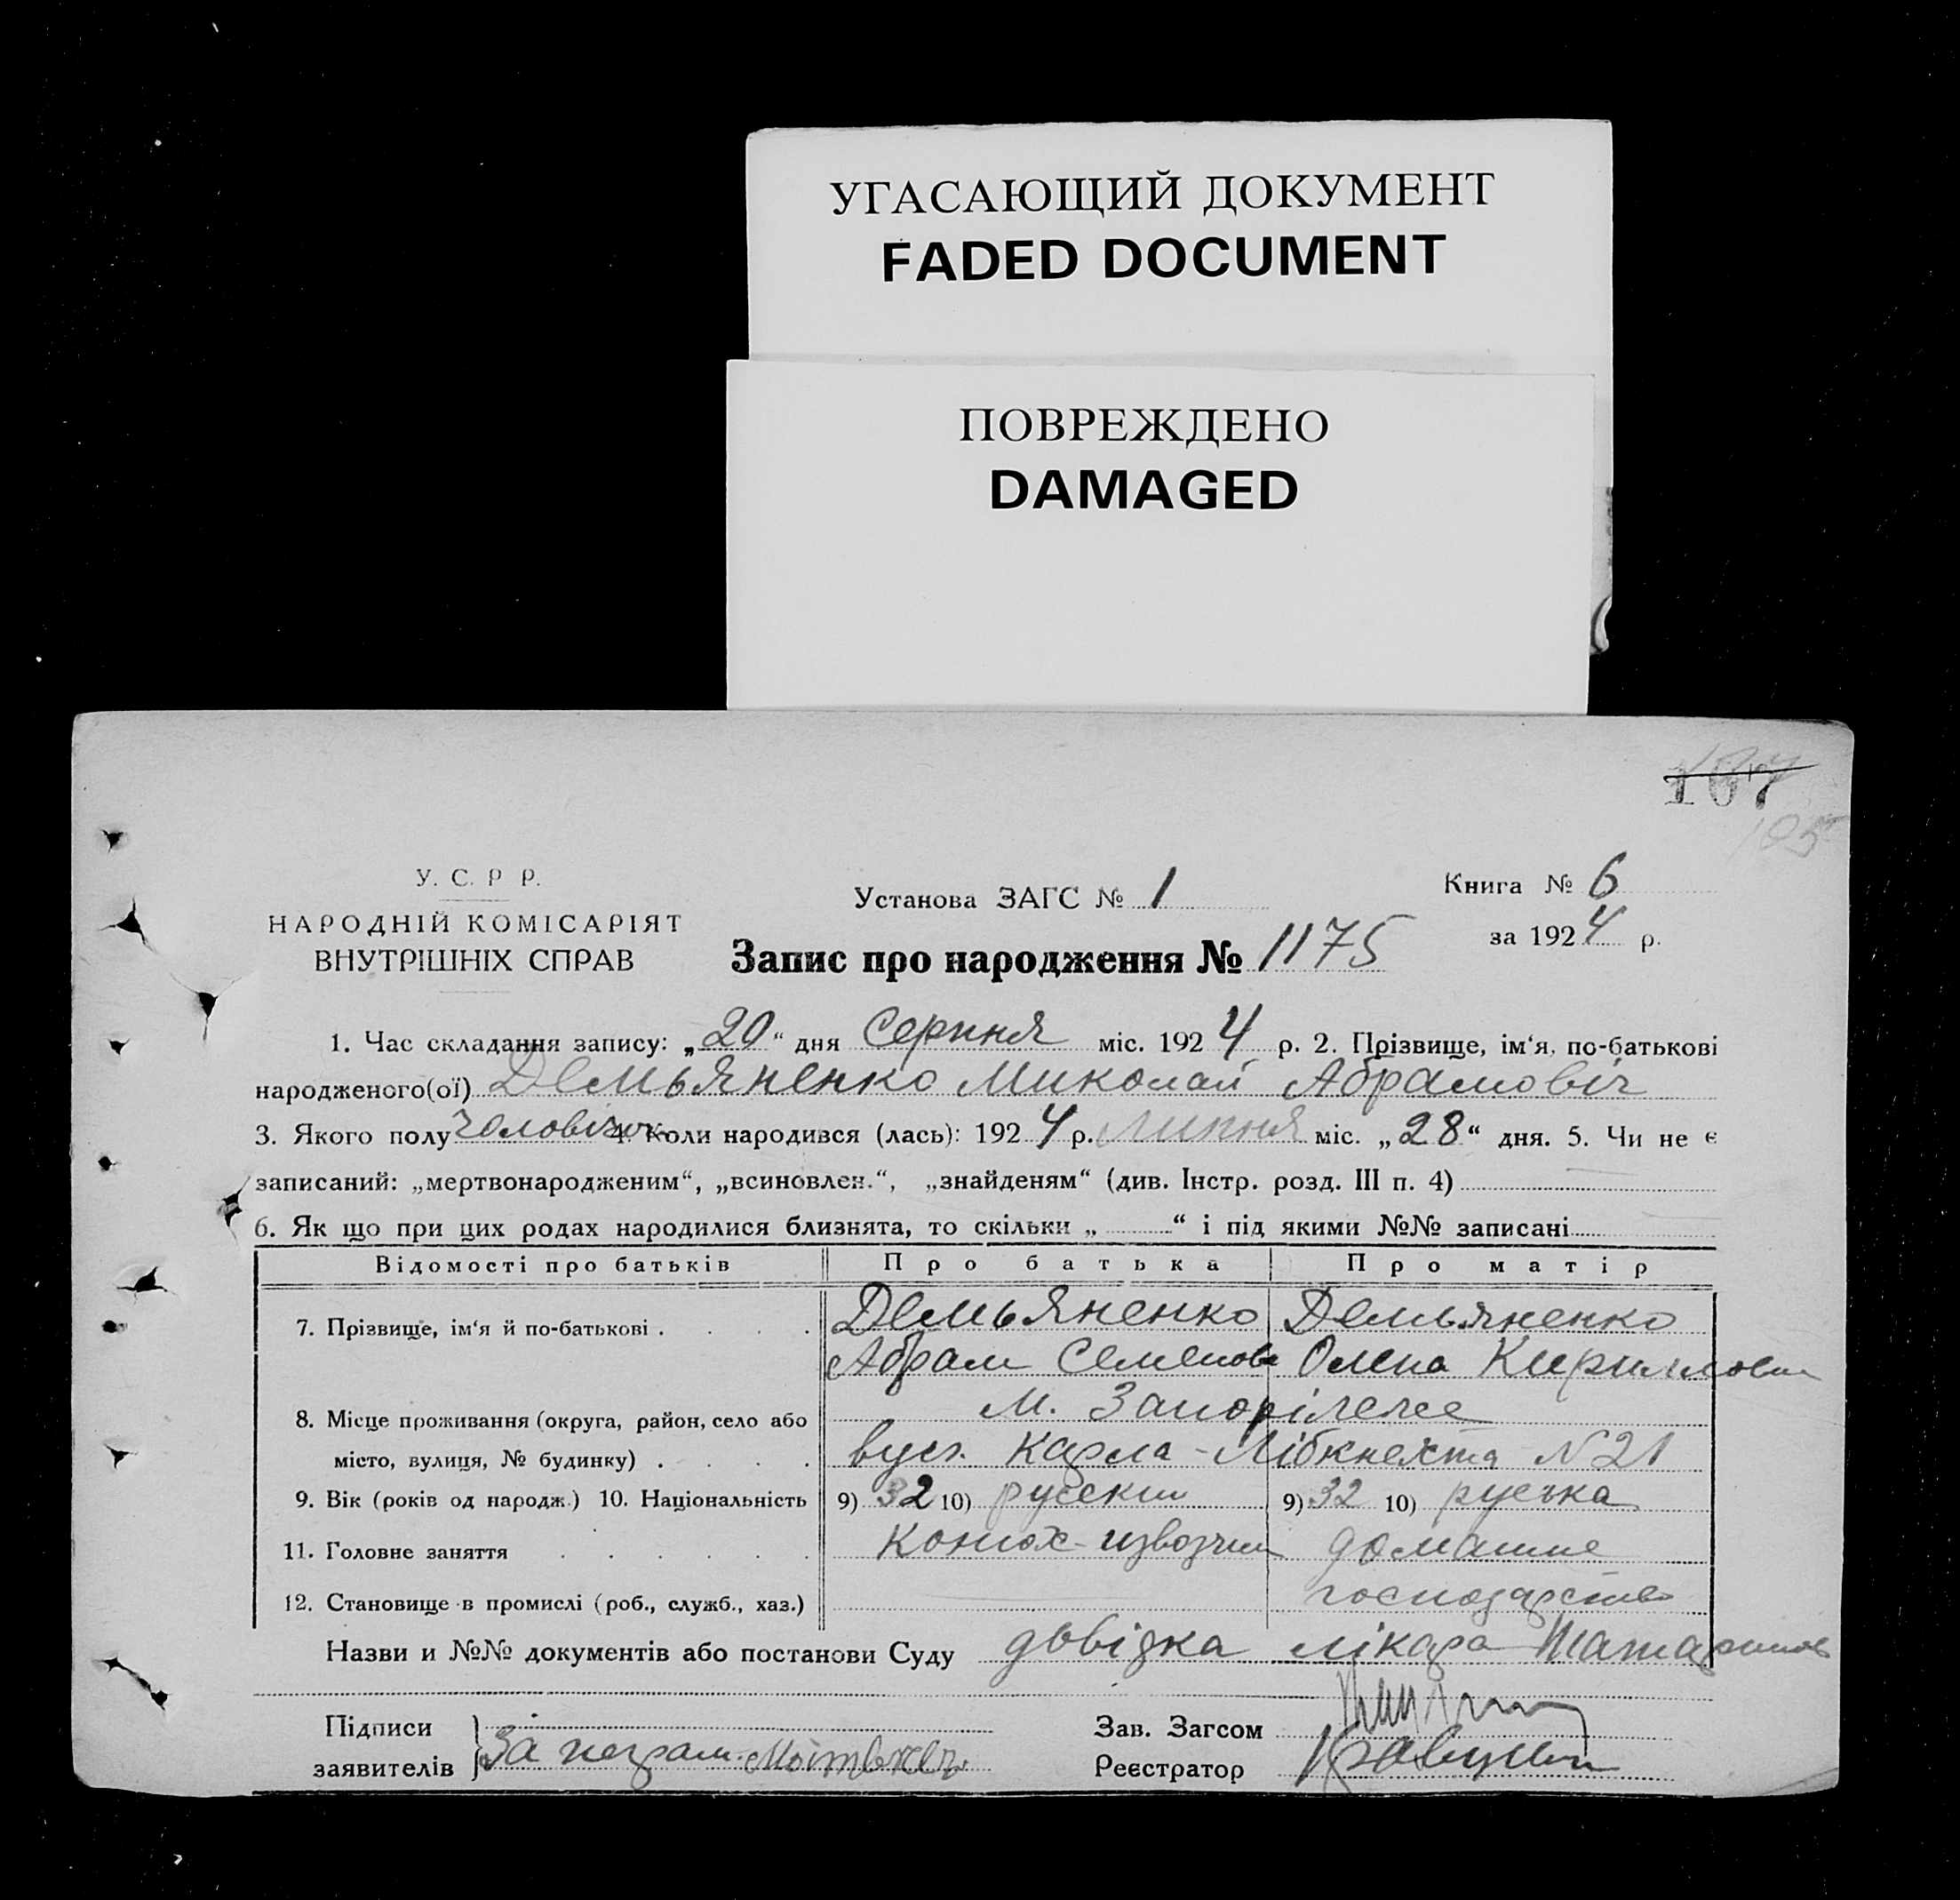 УГАСАЮЩИЙ ДОКУМЕНТ
FADED DOCUMENT
ПОВРЕЖДЕНО
DAMAGED
107
105
У. С. Р Р.
НАРОДНІЙ КОМІСАРІЯТ
ВНУТРІШНІХ СПРАВ
Установа ЗАГС № 1
Книга № 6
за 1924 р.
Запис про народження № 1175
1. Час складання запису: „20“ дня Серпня міс. 1924 р. 2. Прізвище, ім‘я, по-батькові
народженого(ої) Демьяненко Миколай Абрамовіч
3. Якого полу чоловіч. 4. Коли народився (лась): 1924 р. липня міс. „28“ дня. 5. Чи не є
записаний: „мертвонародженим“, „всиновлен.“, „знайденям“ (див. Інстр. розд. III п. 4)
6. Як що при цих родах народилися близнята, то скільки „ “ і під якими №№ записані
Відомості про батьків Про батька Про матір
7. Прізвище, ім‘я й по-батькові . . . . Демьяненко Демьяненко
Абрам Семенов Олена Кирилловн
8. Місце проживання (округа, район, село або м. Запоріжже
місто, вулиця, № будинку) . . . . вул. Карла-Лібкнехта N 21
9. Вік (років од народж.) 10. Національність 9) 32 10) руский 9) 32 10) руська
11. Головне заняття . . . . . . Конюх-извозчик домашнє
12. Становище в промислі (роб., служб., хаз.) господарство
Назви и №№ документів або постанови Суду довідка лікара Татаринов
Підписи
заявителів За неграм.
Зав. Загсом
Реєстратор